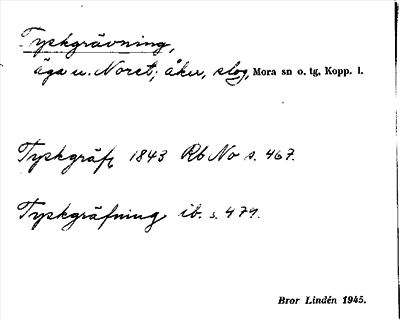 Tyskgrävning,
äga u. Noret; åker, slog, Mora sn o. tg, Kopp. l.
Tyskgräf, 1843 Rb No s. 467.
Tyskgräfning ib. s. 479.
Bror Lindén 1945.